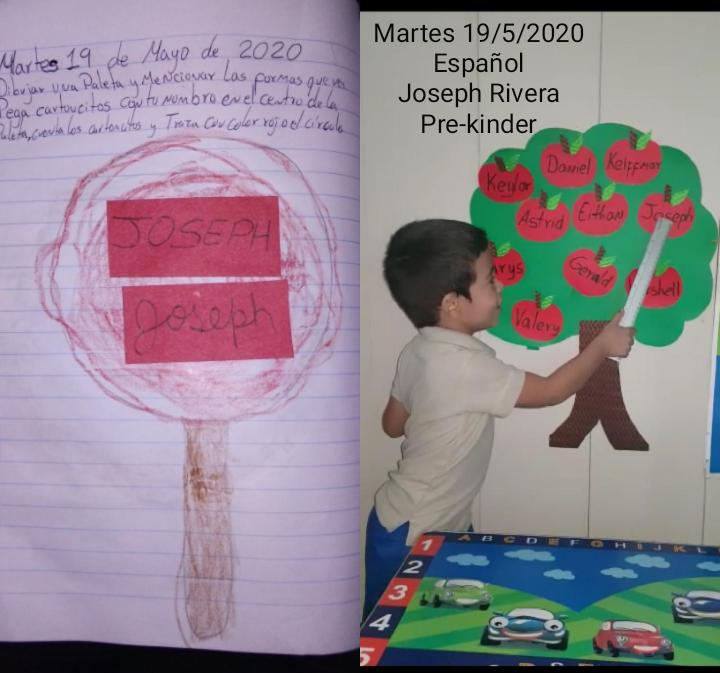 Martes 19 de Mayo de 2020
Dibujar una Paleta y Mencionar las formas que ve
Pega cartoncitos con tu nombre en el centro de la
Paleta, cuenta los cartoncitos y Traza con color rojo el círculo
JOSEPH
Joseph
Martes 19/5/2020
Español
Joseph Rivera
Pre-kinder
Keylor
Daniel
Astrid
Eithan
Joseph
Gerald
Valery
1 A B C D E F G H I J K L
2
3
4
5